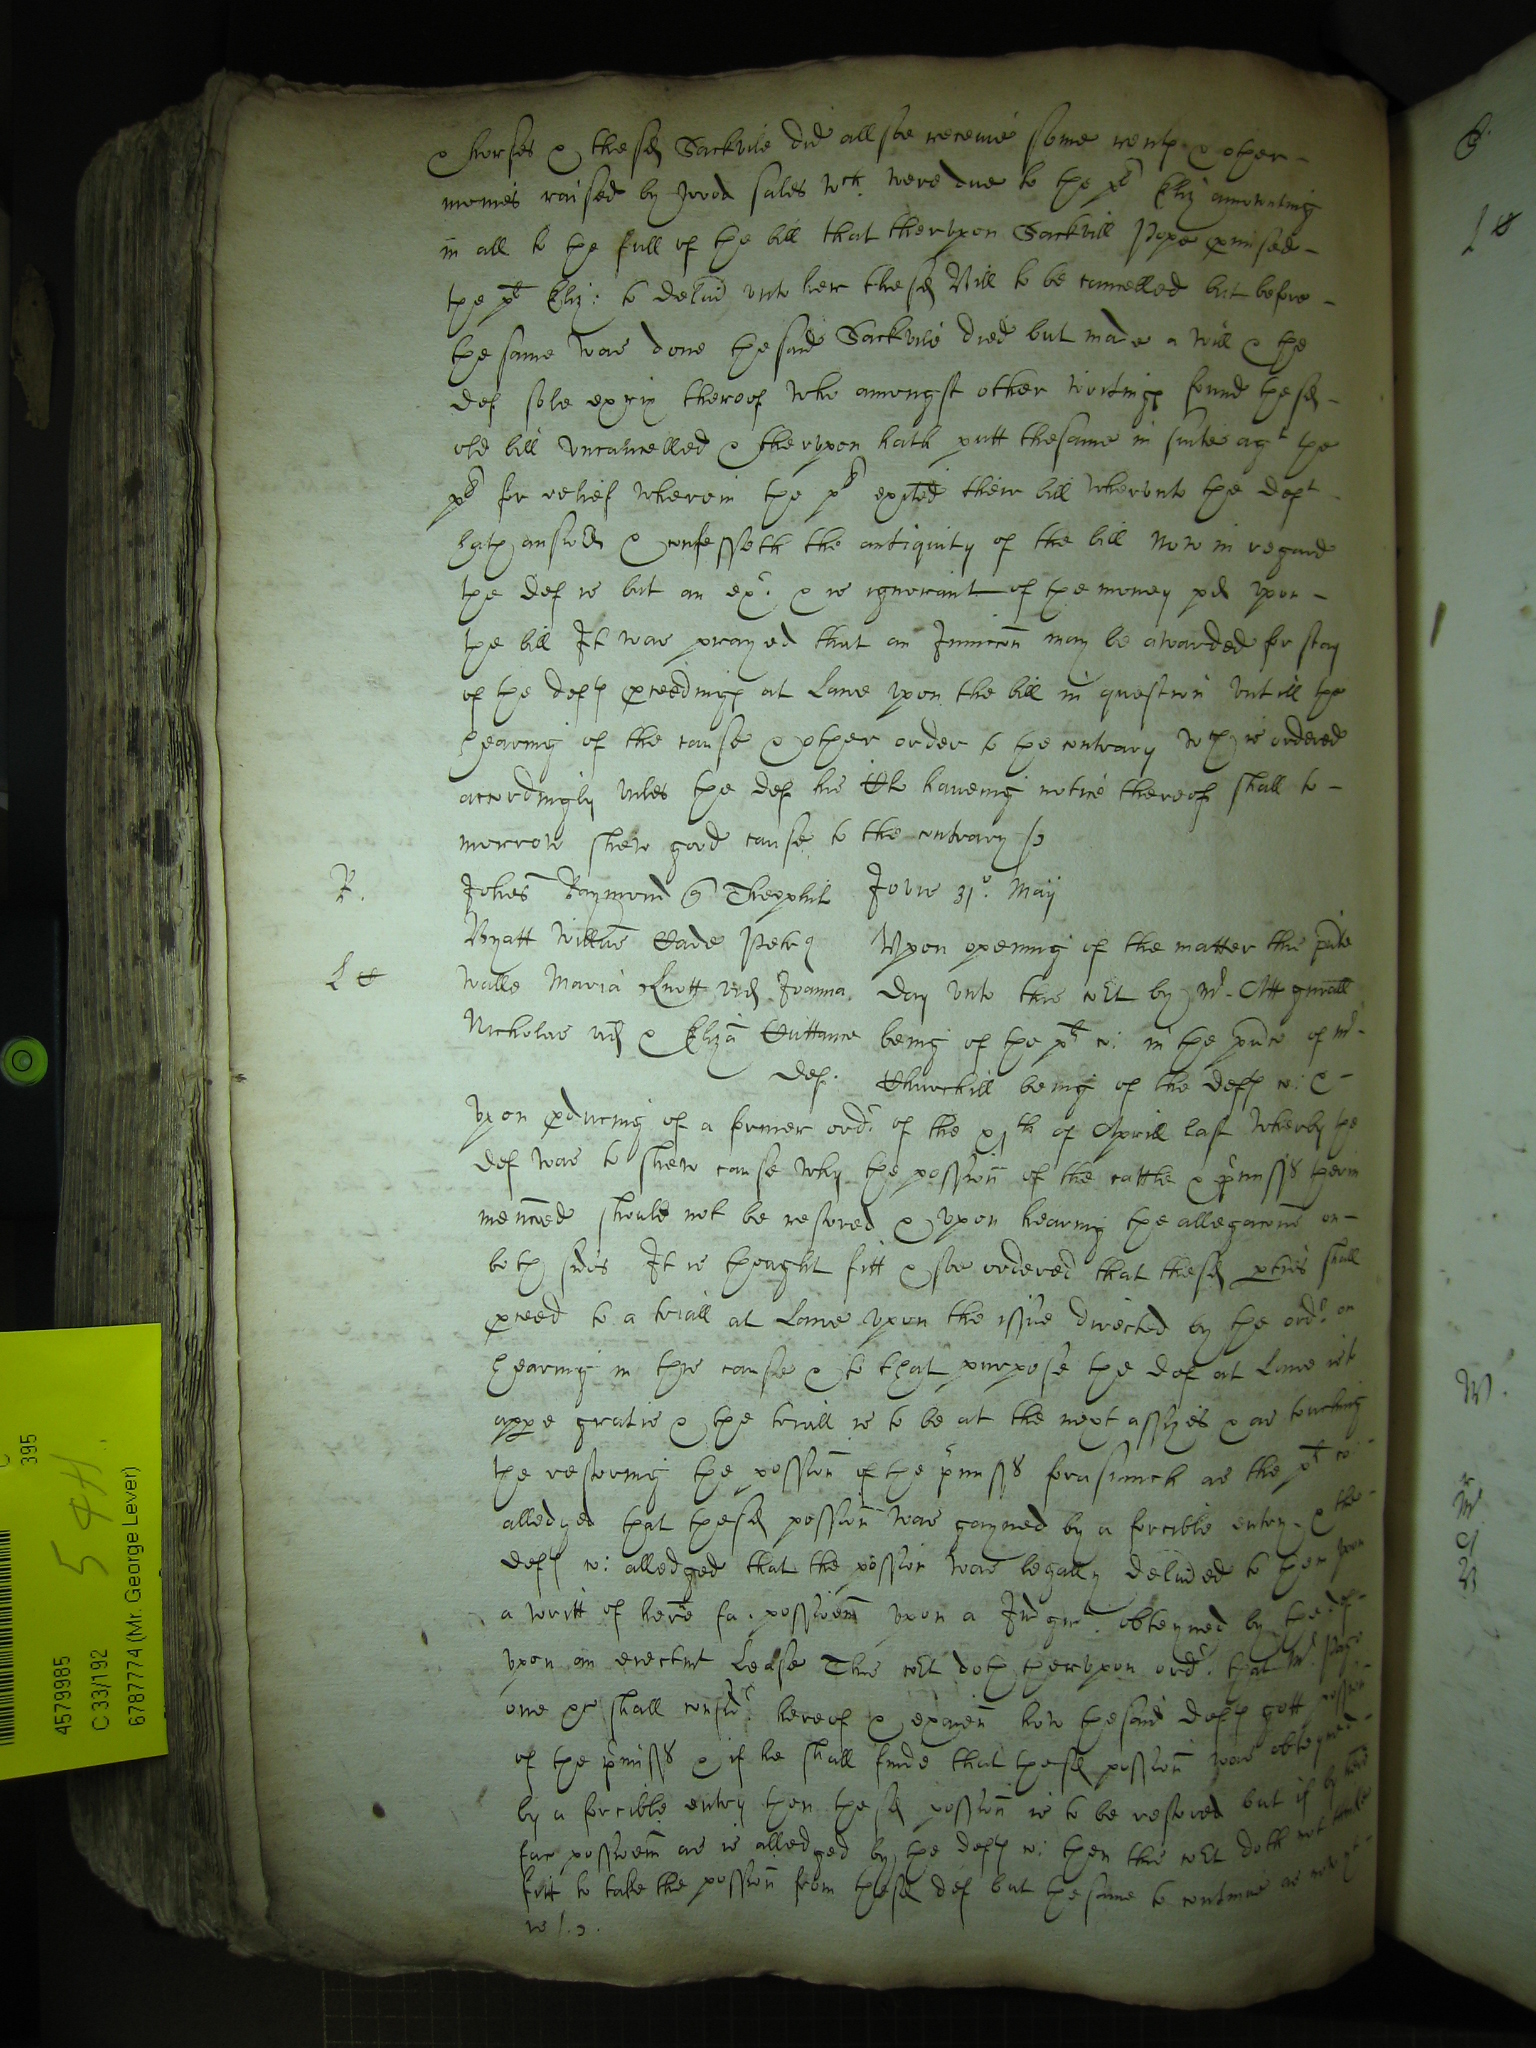 & horses & thesd Sackvile did allsoe receive some rents & other
monies raised by wood sales wch. were due to the plt Eliz amounting
in all to the full of the bill that therupon Sackvill Pope pmised
the plt Eliz: to delivd unto her thesd Bill to be cancelled but before
the same was done the said Sackvile died but made a will & the
def sole exrix thereof who amongst other writings found thesd
old bill uncancelled & therupon hath putt thesame in suite agt the
plt for relief wherein the plt exited their bill wherunto the deft
hath answd & confesseth the antiquity of the bill Now in regard
the def is but an exr. & is ignorant of the money pd upon
the bill It was prayed that an Iniuccon may be awarded for stay
of the defts pceedings at Lawe upon the bill in question untill the
hearing of the cause & other order to the contrary wch is ordered
accordingly unles the def his Clk haveing notice thereof shall to
morrow shew good cause to the contrary
R.
Johes Raymond q Theophil
Jovis 31o. Maij
Wyatt Willus Cade Petrq
Upon opening of the matter this pnte
L C
Walle Maria Knott vid Joanna
day unto this cot by Mr. Att gnall
Nicholas vid & Eliza Quittance
being of the plts co: in the pnce of Mr.
def.
Churchill being of the defts co: &
upon pducing of a former ordr. of the xjth of Aprill last wherby the
def was to shew cause why the possion of the cattle & pmisses therin
menced should not be restored & upon hearing the allegacons on
both sides It is thought fitt & soe ordered that thesd pties shall
pceed to a triall at Lawe upon the issue directed by the ordr. on
hearing in this cause & to that purpose the def at Lawe is to
appe gratis & the triall is to be at the next assizes & as touching
the restoring the possion of the pmisses forasmuch as the plts co
alledged that thesd possion was gayned by a forcible entry & the
defts co: alledged that the possion was legally delived to her upon
a writt of here fa. possioem upon a Judgmt. obteyned by the def
upon an eiectmt Lease This cot doth therupon ordr. that Mr. Page
one &c shall consider hereof & examen how thesaid defts gott possion
of the pmisses & if he shall finde that thesd possion was obteyned
by a forcible entry then thesd possion is to be restored but if by here
fac possioem as is alledged by the defts co: then this cot doth not thinke
fitt to take the possion from thesd def but thesame to continue as now yt
is
4579985
C 33/192
6787774 (Mr. George Lever)
395